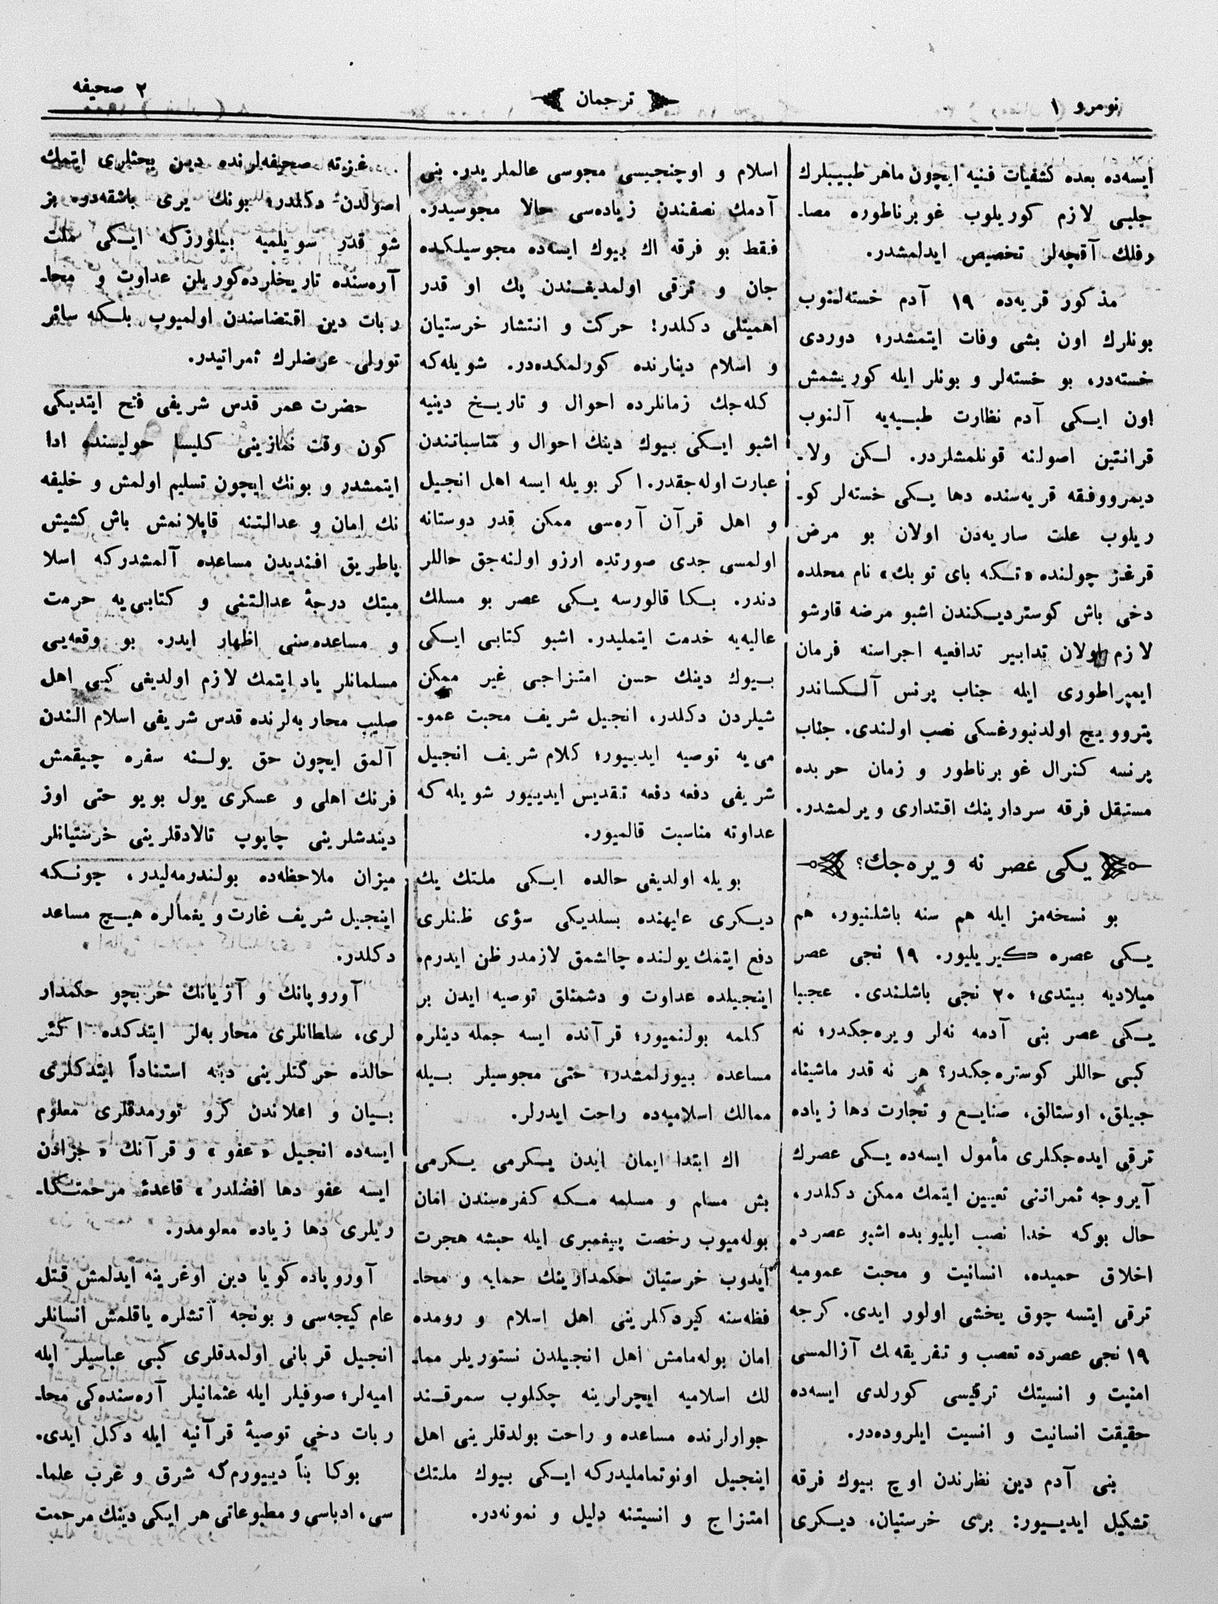 نومرو ١
ترجمان
٢ صحيفه
ايسه‌ده بعده كشفيات فنيه ايچون ماهر طبيبلرك
جلبى لازم كوريلوب غوبرناطوره مصا-
رفلك آقچه‌لر تخصيص ايدلمشدر.
مذكور قريه‌ده ١٩ آدم خسته‌لنوب
بونلرك اون بشى وفات ايتمشدر؛ دوردى
خسته‌در، بو خسته‌لر و بونلر ايله كوريشمش
اون ايكى آدم نظارت طبيه‌يه آلنوب
قرانتين اصولنه قونلمشلردر. لكن ولا-
ديمرووفقه قريه‌سنده دها يكى خسته‌لر كو-
ريلوب علت ساريه‌دن اولان بو مرض
قرغز چولنده «تكه باى توبك» نام محلده
دخى باش كوسترديكندن اشبو مرضه قارشو
لازم اولان تدابير تدافعيه اجراسنه فرمان
ايمپراطورى ايله جناب پرنس آلكساندر
پتروويچ اولدنبورغسكى نصب اولندى. جناب
پرنسه كنرال غوبرناطور و زمان حربده
مستقل فرقه سردارينك اقتدارى ويرلمشدر.
يكى عصر نه ويره‌جك؟
بو نسخه‌مز ايله هم سنه باشلنيور، هم
يكى عصره كيريليور. ١٩ نجى عصر
ميلاديه بيتدى؛ ٢٠ نجى باشلندى. عجبا
يكى عصر بنى آدمه نه‌لر ويره‌جكدر؛ نه
كبى حاللر كوستره‌جكدر؟ هر نه قدر ماشينا-
جيلق، اوستالق، صنايع و تجارت دها زياده
ترقى ايده‌جكلرى مأمول ايسه‌ده يكى عصرك
آيروجه ثمراتنى تعيين ايتمك ممكن دكلدر.
حال بوكه خدا نصب ايليوبده اشبو عصرده
اخلاق حميده، انسانيت و محبت عموميه
ترقى ايتسه چوق يخشى اولور ايدى. كرچه
١٩ نجى عصرده تعصب و تفريقه‌لك آزالمسى
امنيت و انسيتك ترقيسى كورلدى ايسه‌ده
حقيقت انسانيت و انسيت ايلروده‌در.
بنى آدم دين نظرندن اوچ بيوك فرقه
تشكيل ايدييور: برى خرستيان، ديكرى
اسلام و اوچنجيسى مجوسى عالملريدر. بنى
آدمك نصفندن زياده‌سى حالا مجوسيدر.
فقط بو فرقه اك بيوك ايسه‌ده مجوسيلكده
جان و ترقى اولمديغندن پك او قدر
اهميتلى دكلدر! حركت و انتشار خرستيان
و اسلام دينارنده كورلمكده‌در. شويله‌كه
كله‌جك زمانلرده احوال و تاريخ دينيه
اشبو ايكى بيوك دينك احوال و مناسباتندن
عبارت اوله‌جقدر. اكر بويله ايسه اهل انجيل
و اهل قرآن آره‌سى ممكن قدر دوستانه
اولمسى جدى صورتده ارزو اولنه‌جق حاللر
دندر. بكا قالورسه يكى عصر بو مسلك
عاليه‌يه خدمت ايتمليدر. اشبو كتابى ايكى
بيوك دينك حسن امتزاجى غير ممكن
شيلردن دكلدر، انجيل شريف محبت عمو-
مى‌يه توصيه ايدييور؛ كلام شريف انجيل
شريفى دفعه دفعه تقديس ايدييور شويله كه
عداوته مناسبت قالميور.
بويله اولديغى حالده ايكى ملتك يك
ديكرى عليهنده بسلديكى سؤى ظنلرى
دفع ايتمك يولنده چالشمق لازمدر ظن ايدرم.
اينجيلده عداوت و دشمنلق توصيه ايدن بر
كلمه بولنميور؛ قرآنده ايسه جمله دينلره
مساعده بيورلمشدر؛ حتى مجوسيلر بيله
ممالك اسلاميه‌ده راحت ايدرلر.
اك ابتدا ايمان ايدن يكرمى يكرمى
بش مسلم و مسلمه مكه كفره‌سندن امان
بوله‌ميوب رخصت پيغمبرى ايله حبشه هجرت
ايدوب خرستيان حكمدارينك حمايه و محا-
فظه‌سنه كيردكلرينى اهل اسلام و رومده
امان بوله‌مامش اهل انجيلدن نستوريلر مما-
لك اسلاميه ايچرلرينه چكلوب سمرقند
جوارلرنده مساعده و راحت بولدقلرينى اهل
اينجيل اونوتمامليدركه ايكى بيوك ملتك
امتزاج و انسيتنه دليل و نمونه‌در.
غزته صحيفه‌لرنده دين بحثلرى ايتمك
اصولدن دكلدر؛ بونك يرى باشقه‌در. بز
شو قدر سويلميه بيلورزكه ايكى ملت
آره‌سنده تاريخلرده كوريلن عداوت و محا-
ربات دين اقتضاسندن اولميوب بلكه سائر
تورلى غرضلرك ثمراتيدر.
حضرت عمر قدس شريفى فتح ايتديكى
كون وقت نمازينى كليسا حوليسنده ادا
ايتمشدر و بونك ايچون تسليم اولمش و خليفه
نك امان و عدالتنه قاپلانمش باش كشيش
پاطريق افنديدن مساعده آلمشدركه اسلا
ميتك درجۀ عدالتنى و كتابى‌يه حرمت
و مساعده‌سنى اظهار ايدر. بو وقعه‌يى
مسلمانلر ياد ايتمك لازم اولديغى كبى اهل
صليب محاربه‌لرنده قدس شريفى اسلام الندن
آلمق ايچون حق يولنه سفره چيقمش
فرنك اهلى و عسكرى يول بويو حتى اوز
ديندشلرينى چاپوپ تالادقلرينى خرستيانلر
ميزان ملاحظه‌ده بولندرمه‌ليدر، چونكه
اينجيل شريف غارت و يغمالره هيچ مساعد
دكلدر.
آوروپانك و آزيانك حربجو حكمدار
لرى، سلطانلرى محاربه‌لر ايتدكده اكثر
حالده حركتلرينى دينه استناداً ايتدكلرى
بيان و اعلاندن كرو تورمدقلرى معلوم
ايسه‌ده انجيل «عفو» و قرآنك «جزادن
ايسه عفو دها افضلدر» قاعدۀ مرحمتكا-
ريلرى دها زياده معلومدر.
آوروپاده كويا دين اوغرينه ايدلمش قتل
عام كيجه‌سى و بونجه آتشلره ياقلمش انسانلر
انجيل قربانى اولمدقلرى كبى عباسيلر ايله
اميه‌لر؛ صوفيلر ايله عثمانيلر آره‌سنده‌كى محا-
ربات دخى توصيۀ قرآنيه ايله دكل ايدى.
بوكا بناً دييورم‌كه شرق و غرب علما-
سى، ادباسى و مطبوعاتى هر ايكى دينك مرحمت